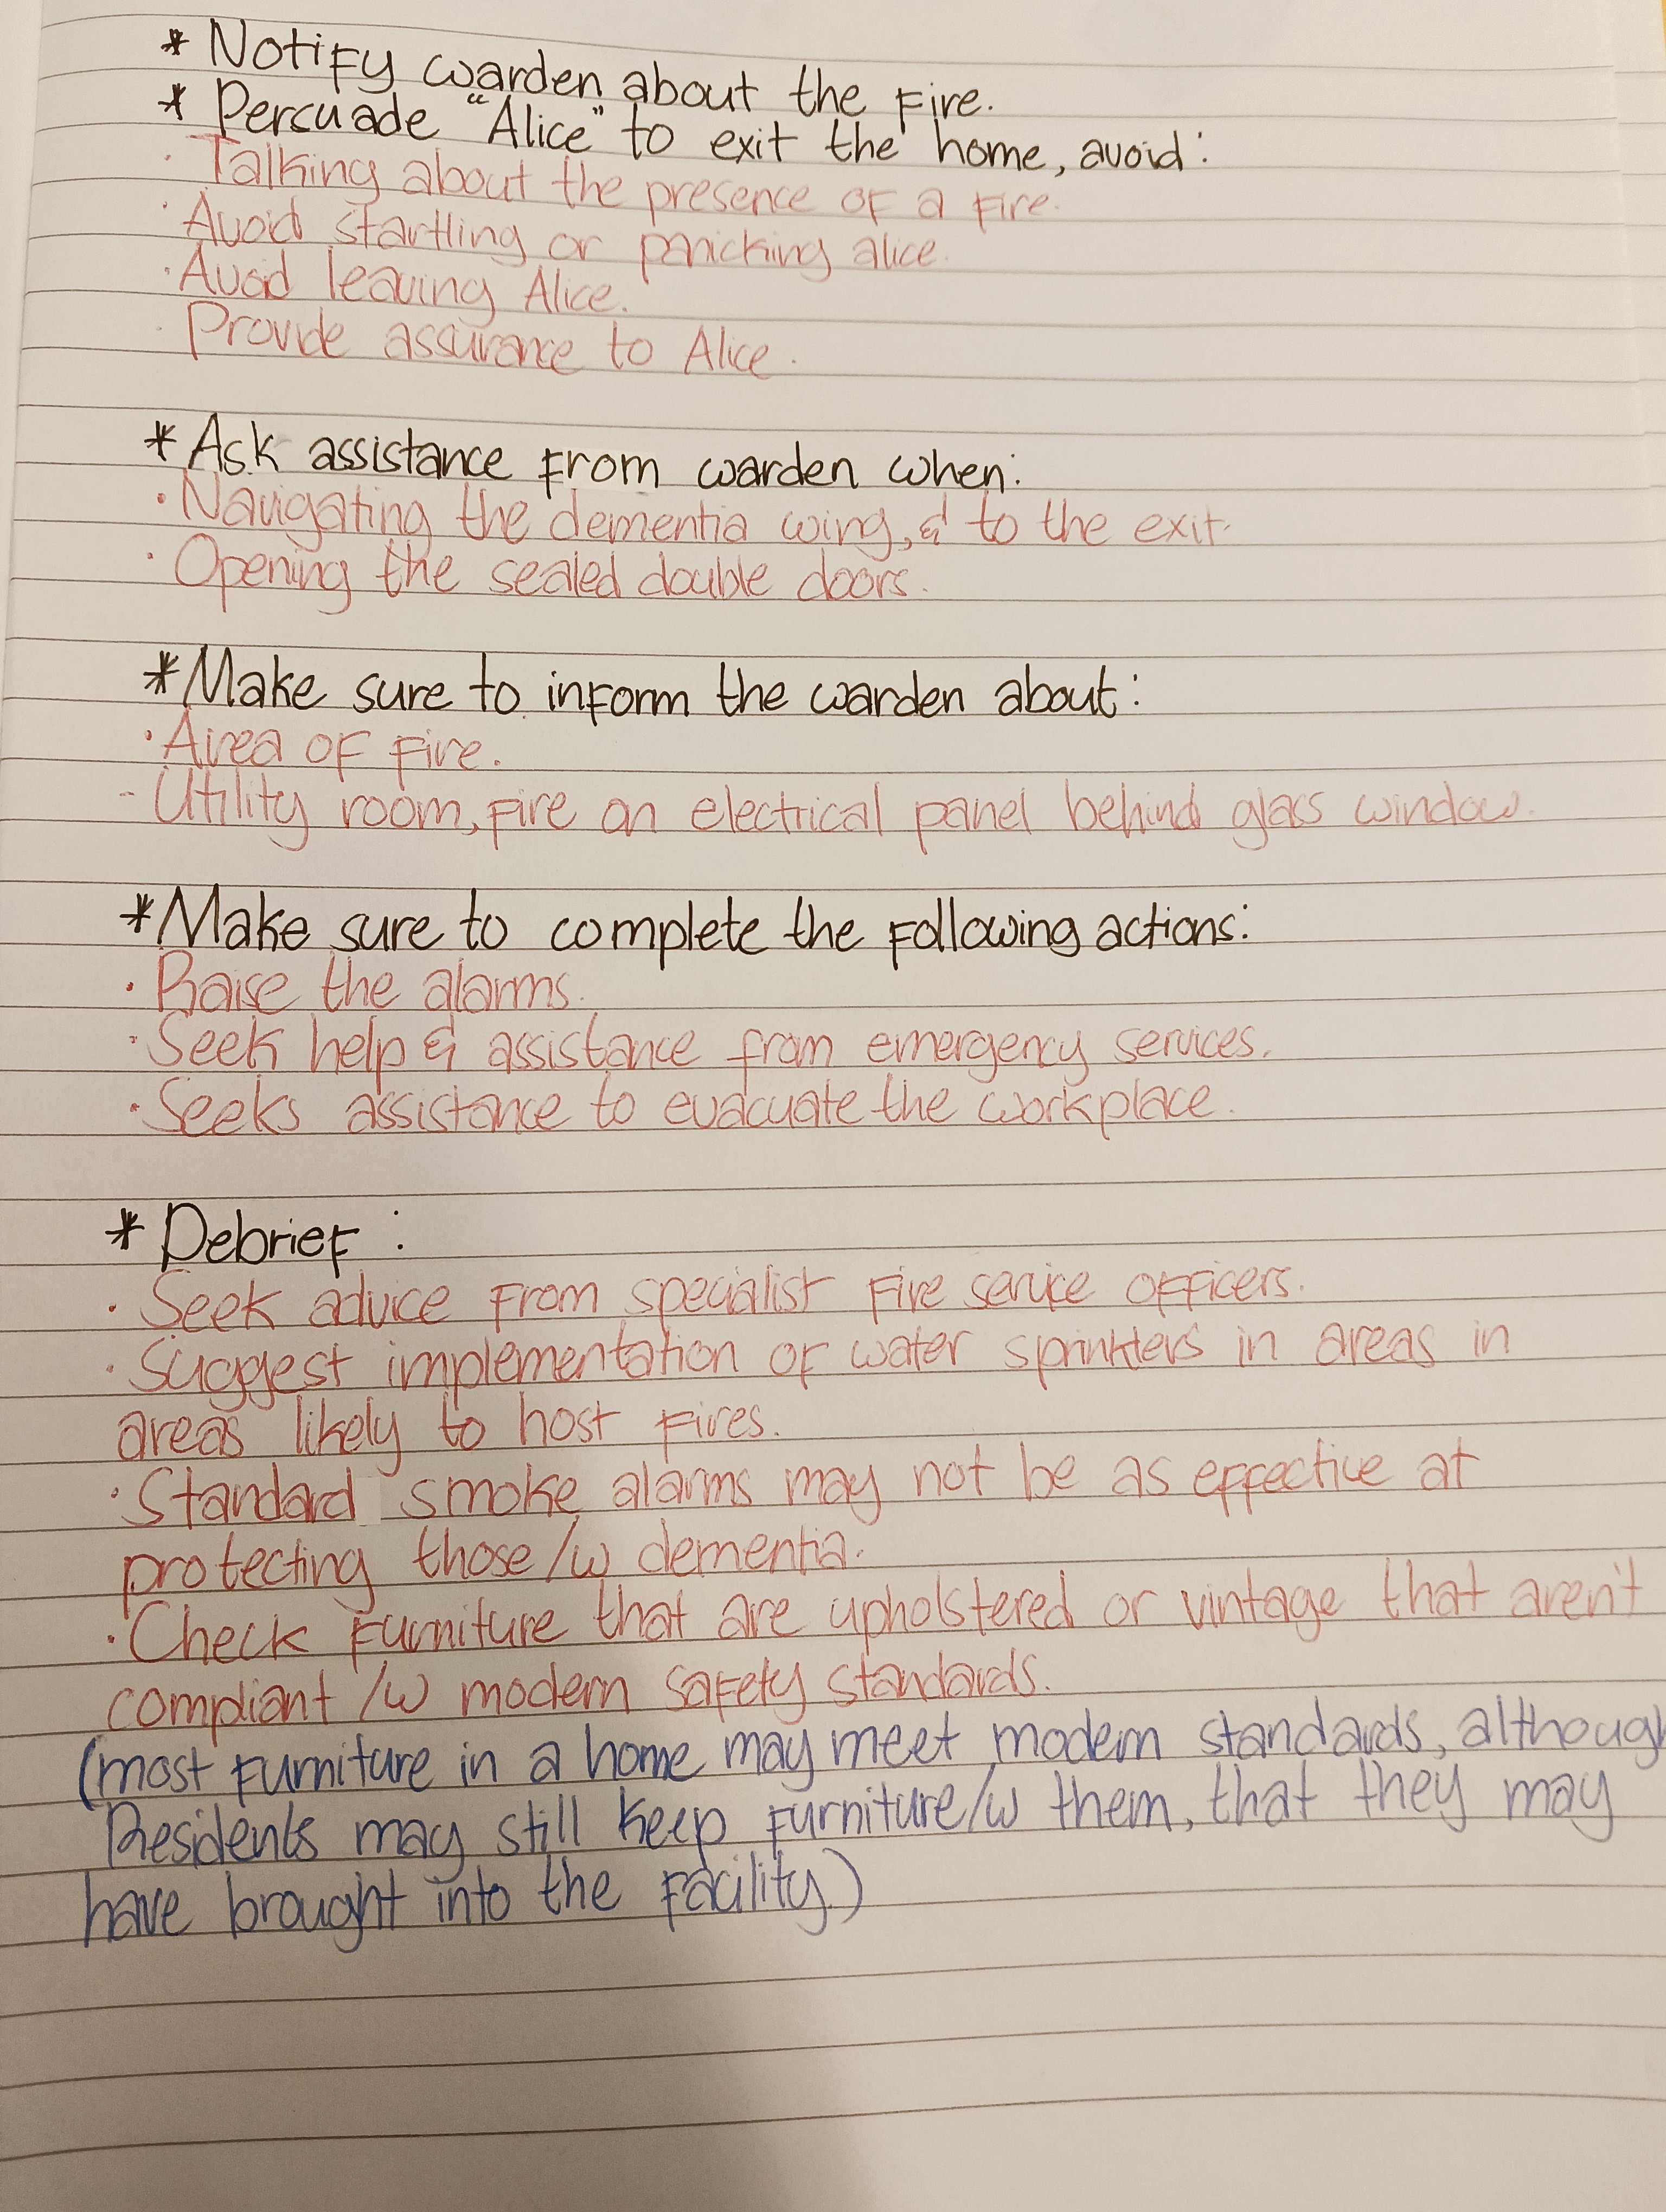 * Notify warden about the fire.
* Persuade "Alice" to exit the home, avoid:
· Talking about the presence of a fire.
· Avoid startling or panicking alice.
· Avoid leaving Alice.
· Provide assurance to Alice.
* Ask assistance from warden when:
· Navigating the dementia wing, & to the exit.
· Opening the sealed double doors.
* Make sure to inform the warden about:
· Area of fire.
- Utility room, fire on electrical panel behind glass window.
* Make sure to complete the following actions:
· Raise the alarms.
· Seek help & assistance from emergency services.
· Seeks assistance to evacuate the workplace.
* Debrief :
· Seek advice from specialist fire service officers.
· Suggest implementation of water sprinklers in areas in
areas likely to host fires.
· Standard smoke alarms may not be as effective at
protecting those /w dementia.
· Check furniture that are upholstered or vintage that aren't
compliant /w modern safety standards.
(most furniture in a home may meet modern standards, although
Residents may still keep furniture /w them, that they may
have brought into the facility.)